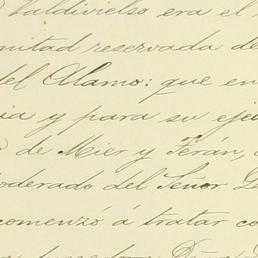 Valdivielso era el
mitad reservada de
del Alamo: que en
ia y para su eje
de Mier y Terán,
oderado del Señor
comenzó á tratar co